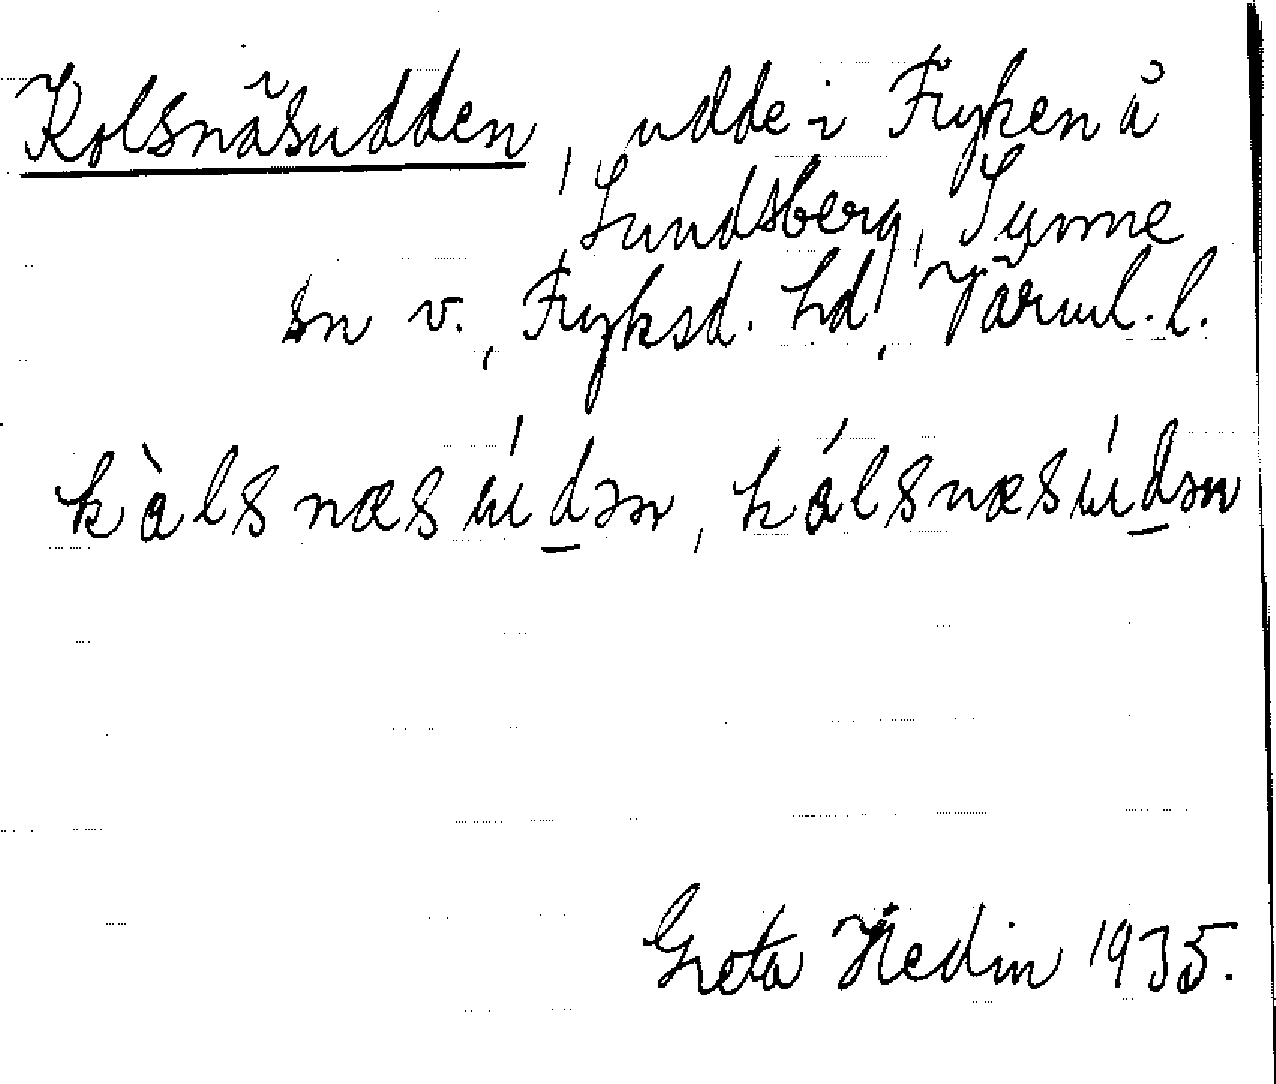 Kolsnäsudden, udde i Fryken å
Lundsberg, Sunne
sn v., Fryksd. hd, Värml. l.
kàlsnæsúdən, kálsnæsúdən
Greta Hedin 1935.